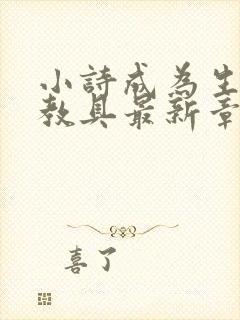 小詩成為生
教具最新章
喜了